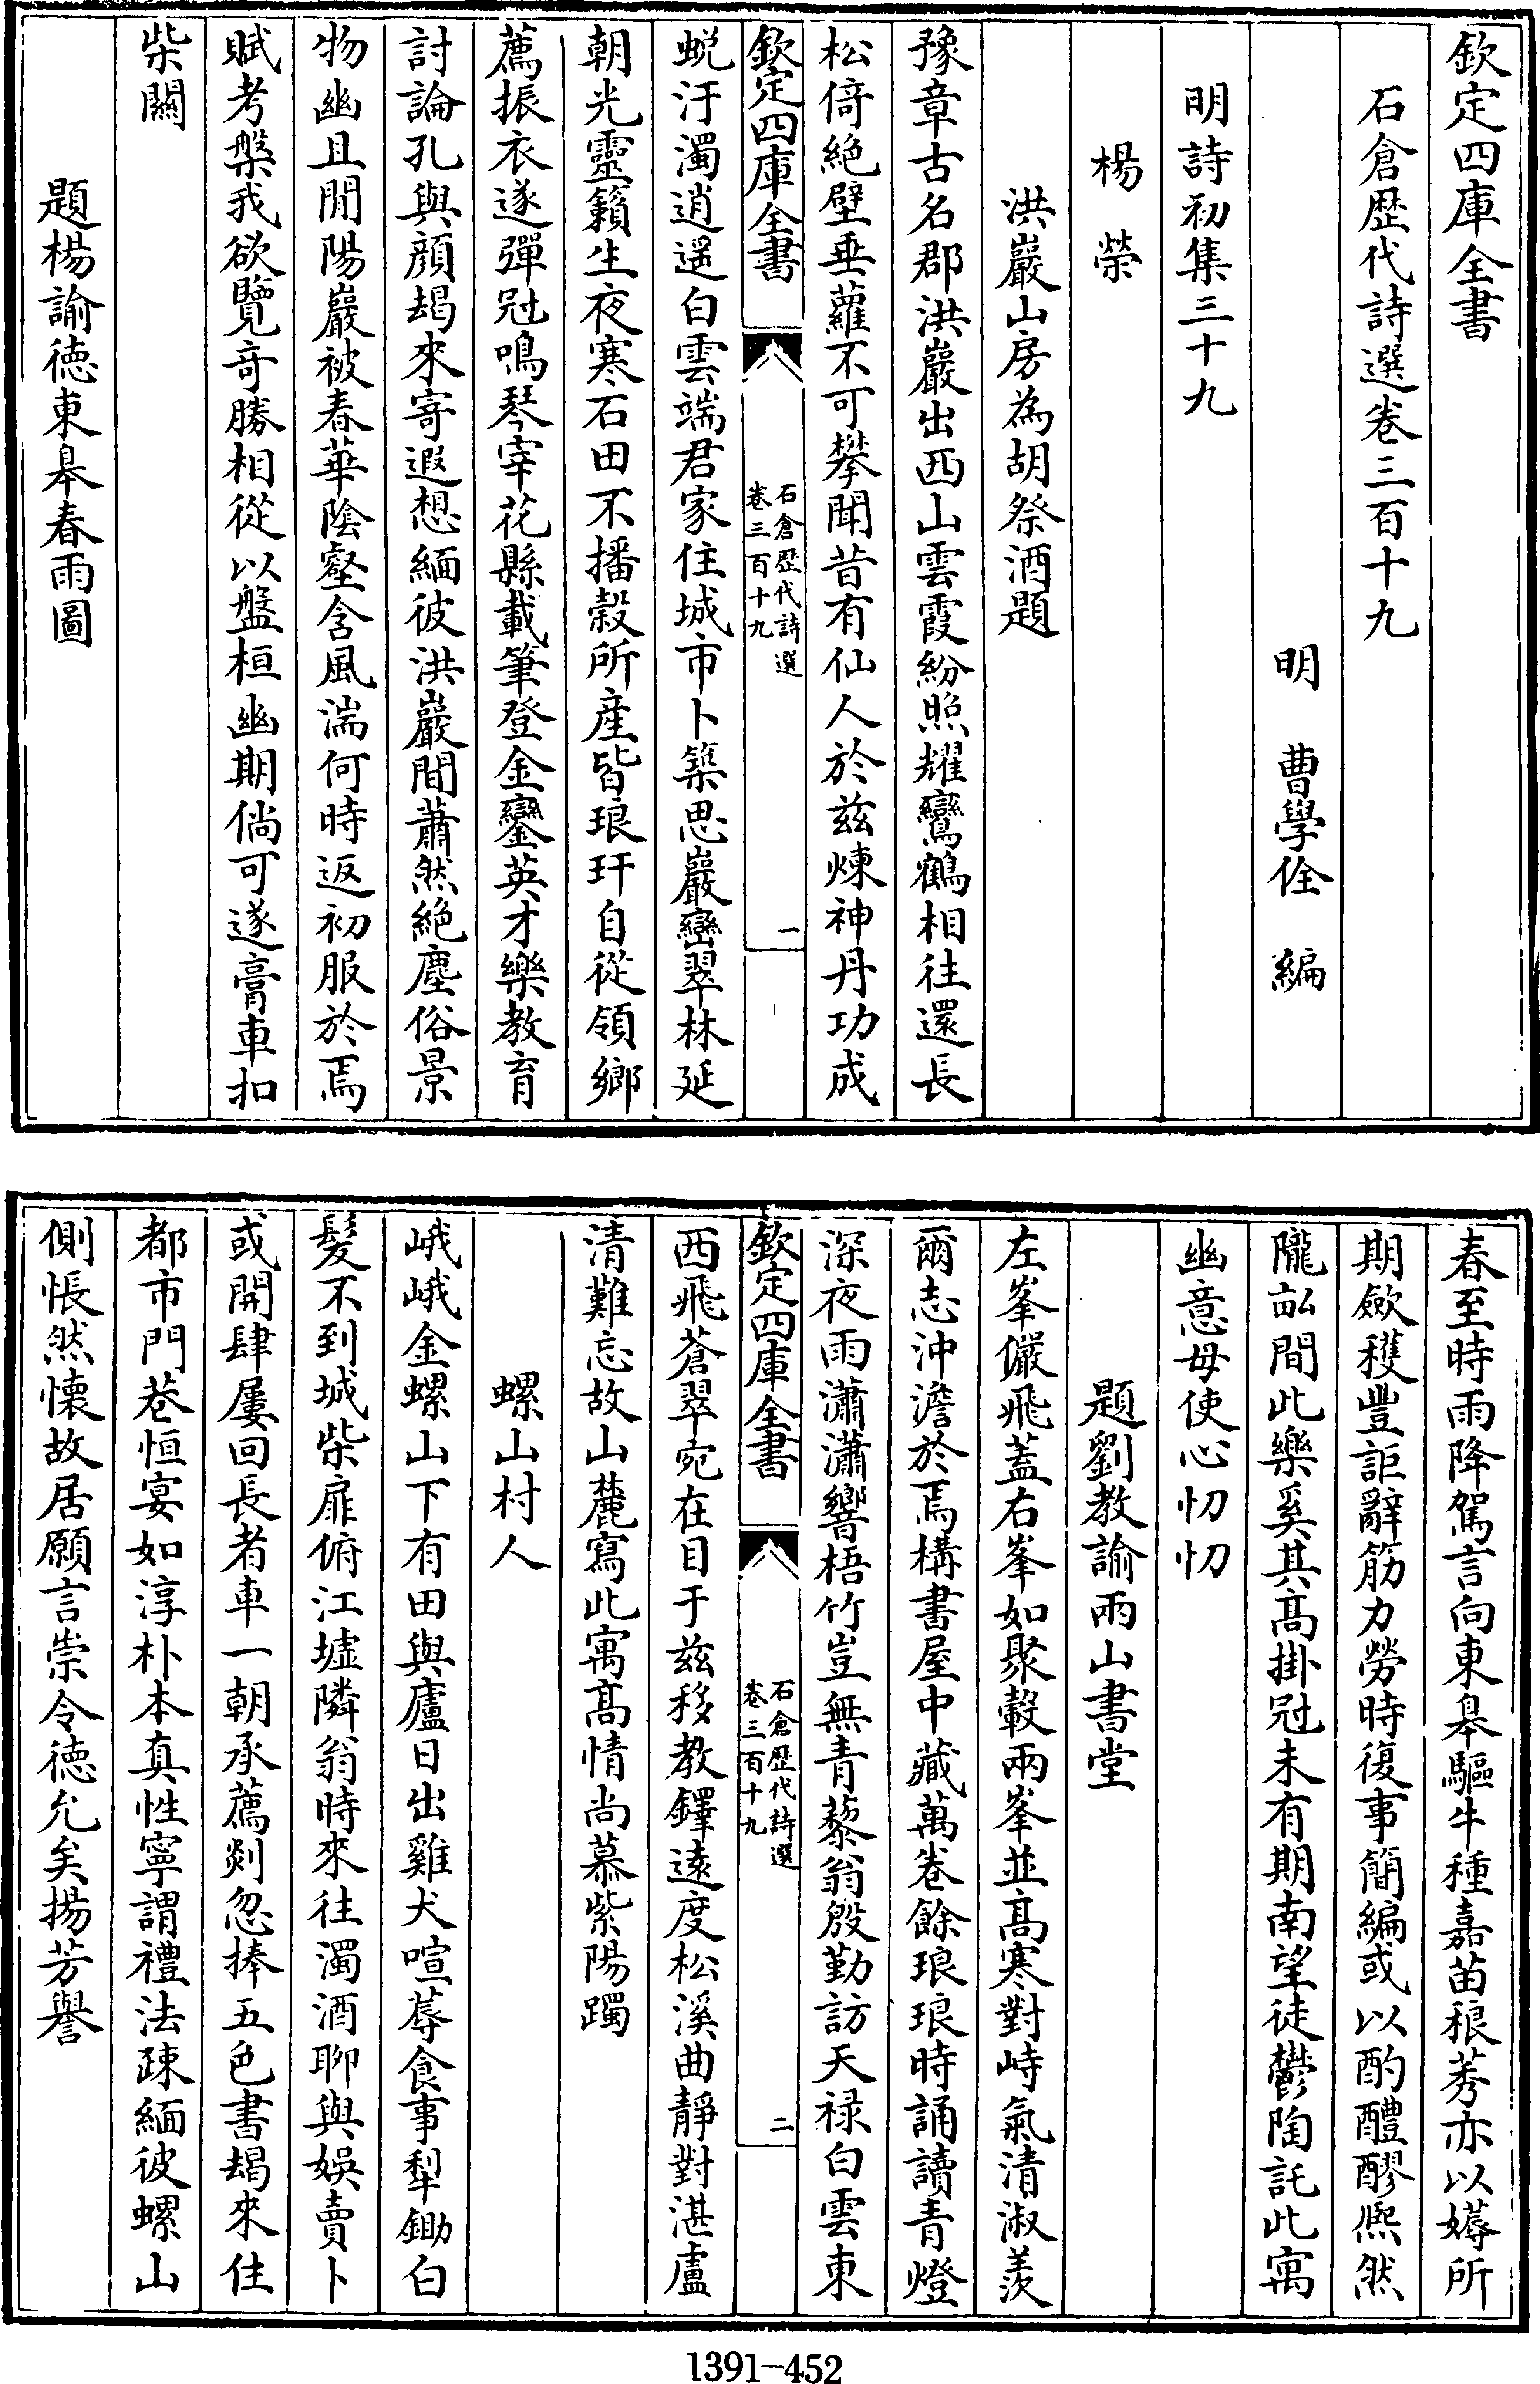 欽定四庫全書
石倉歴代詩選卷三百十九
明　曹學佺　編
明詩初集三十九
楊榮
洪巖山房為胡祭酒題
豫章古名郡洪巖出西山雲霞紛照耀鸞鶴相往還長
松倚絶壁垂蘿不可攀聞昔有仙人於兹煉神丹功成
欽定四庫全書
石倉歴代詩選
卷三百十九
一
蜕汙濁逍遥白雲端君家住城市卜築思巖巒翠林延
朝光靈籟生夜寒石田不播穀所産皆琅玕自從領鄉
薦振衣遂彈冠鳴琴宰花縣載筆登金鑾英才樂教育
討論孔與顔朅來寄遐想緬彼洪巖間蕭然絶塵俗景
物幽且閒陽巖被春華陰壑含風湍何時返初服於焉
賦考槃我欲覽奇勝相從以盤桓幽期倘可遂膏車扣
柴關
題楊諭徳東皋春雨圖
春至時雨降駕言向東皋驅牛種嘉苗稂莠亦以薅所
期斂穫豐詎辭筋力勞時復事簡編或以酌醴醪熈然
隴畝間此樂奚其髙掛冠未有期南望徒鬱陶託此寓
幽意毋使心忉忉
題劉教諭兩山書堂
左峯儼飛蓋右峯如聚轂兩峯並髙寒對峙氣清淑羡
爾志沖澹於焉構書屋中藏萬卷餘琅琅時誦讀青燈
深夜雨瀟瀟響梧竹豈無青藜翁殷勤訪天禄白雲東
欽定四庫全書
石倉歴代詩選
卷三百十九
二
西飛蒼翠宛在目于兹移教鐸逺度松溪曲靜對湛盧
清難忘故山麓寫此寓髙情尚慕紫陽躅
螺山村人
峨峨金螺山下有田與廬日出雞犬喧蓐食事犁鋤白
髪不到城柴扉俯江墟隣翁時來往濁酒聊與娛賣卜
或開肆屢回長者車一朝承薦剡忽捧五色書朅來住
都市門巷恒宴如淳朴本真性寧謂禮法疎緬彼螺山
側悵然懐故居願言崇令徳允矣揚芳譽
1391-452